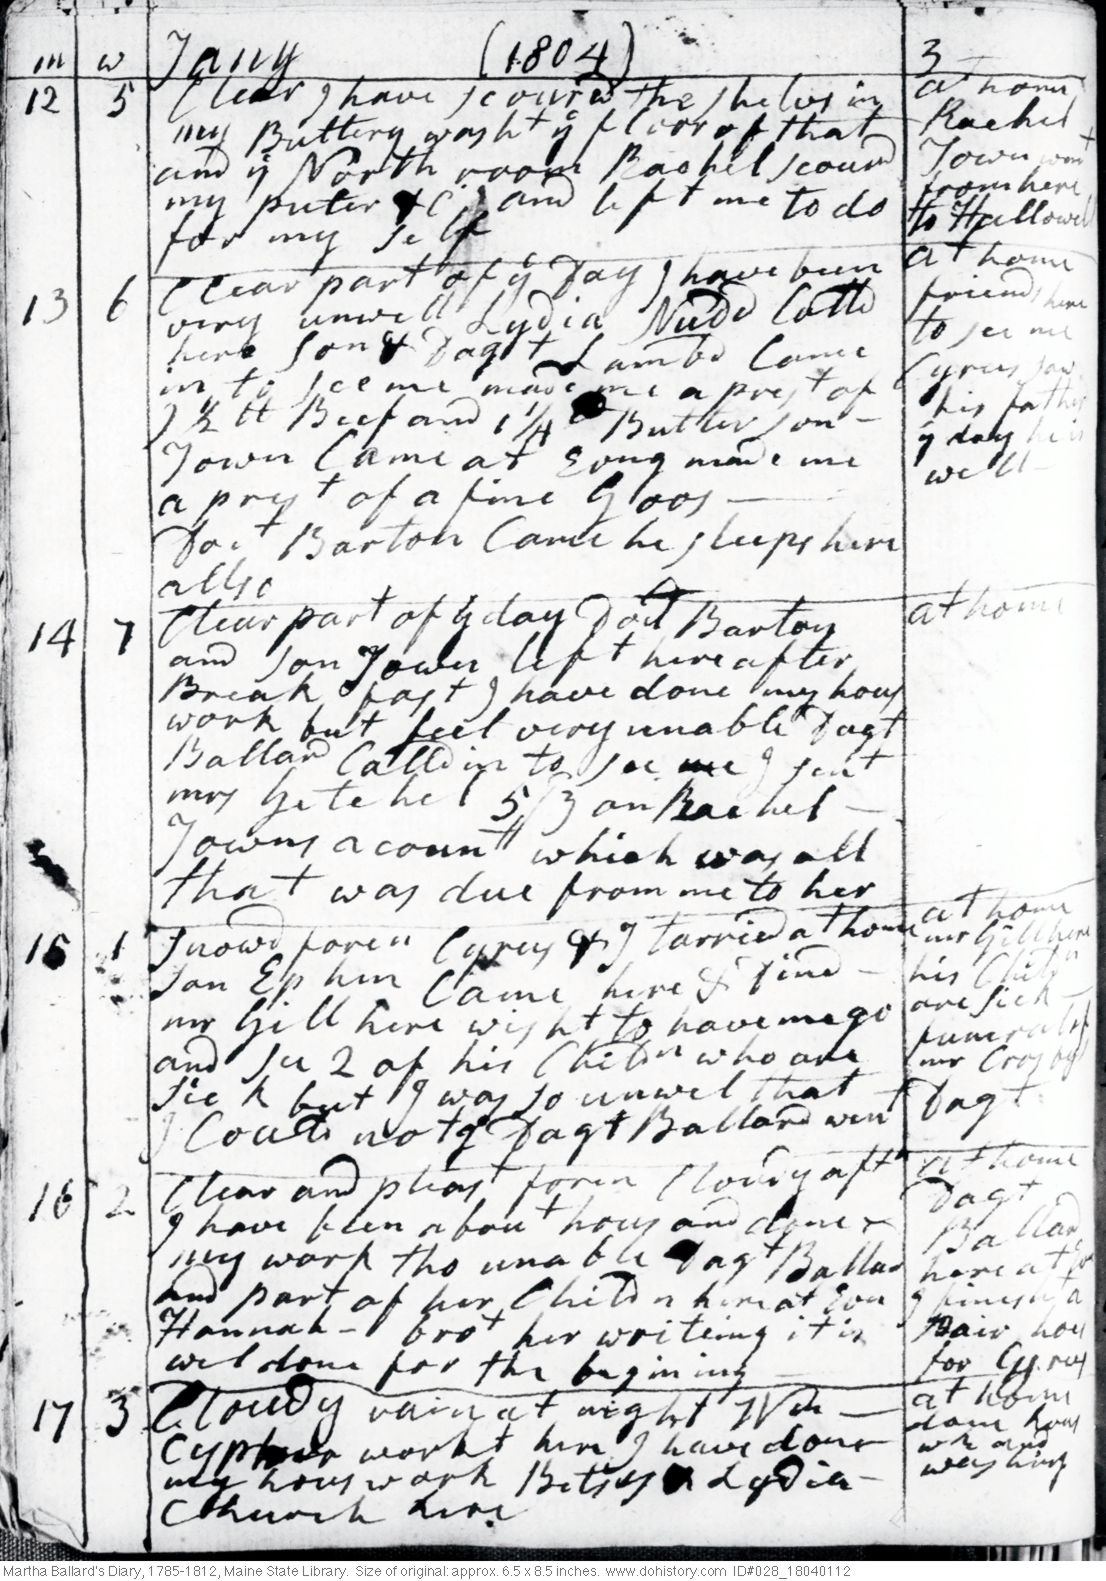 m w Jany (1804) 3
12 5 Clear I have scourd the shelvs in
my Buttery washt ÿ floor of that
and ÿ North room Rachel scourd
my puter &C and left me to do
for my self
at home
Rachel
Town went
from here
to Hallowel
13 6 Clear part of ÿ Day I have been
very unwell Lydia Nudd Calld
here Son & Dagt Lambd Came
in to see me made me a prest of
7 ½ tt Beef and 1 ¼ Butter son
Town Came at Evng made me
a prest of a fine Goos
Doct Barton Came he sleeps here
allso
at home
friends here
to see me
Cyrus saw
his father
ÿ day he is
well
14 7 Clear part of ÿ day Doct Barton
and son Town left here after
Break fast I have done my hous
work but feel very unable Dagt
Ballard Calld in to see me I sent
mrs Getchel 5/3 on Rachel
Towns acount which was all
that was due from me to her
at home
15 1 Snowd foren Cyrus & I tarried at home
Son Ephm Came here & dind
mr Gill here wisht to have me go
and see 2 of his Childn who are
sick but I was so unwel that
I Could not go Dagt Ballard went
at home
mr Gill here
his Childn
are sick
funeral of
mr Crosbys
Dagt
16 2 Clear and pleast foren Cloudy aftn
I have been about hous and done
my work tho unable Dagt Ballard
and part of her Childn here at Evn
Hannah brot her writeing it is
wel done for the begining
at home
Dagt
Ballard
here at
I finisht a
Pair hos
for Cyrus
17 3 Cloudy rain at night Wm
Cypher workt here I have done
my hous work Betsy & Lydia
Church here
at home
done hous
wk and
washing
Martha Ballard's Diary, 1785-1812, Maine State Library. Size of original: approx. 6.5 x 8.5 inches. www.dohistory.com ID#028_18040112